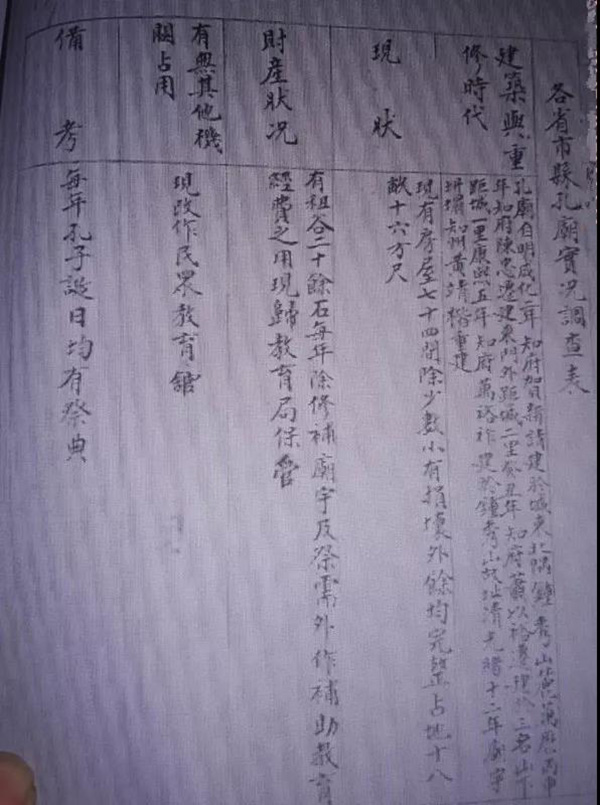 各省市縣孔廟實況調查表
建築與重
修時代
孔廟自明成化二年知府賀勛請建於城東北隅鐘秀山麓萬曆丙申
年知府陳忠遷建東門外距城二里癸丑年知府蕭以裕遷建於三台山下
距城一里康熙五年知府萬裕祚建於鐘秀山故址清光緒十二年廟宇
坍壞知州黃靖楷重建
現狀
現有房屋七十四間除少數小有損壞外餘均完整占地十八
畝十六方尺
財產狀況
有租谷二十餘石每年除修補廟宇及祭需外作補助教育
經費之用現歸教育局保管
有無其他機
關占用
現改作民眾教育館
備考
每年孔子誕日均有祭典